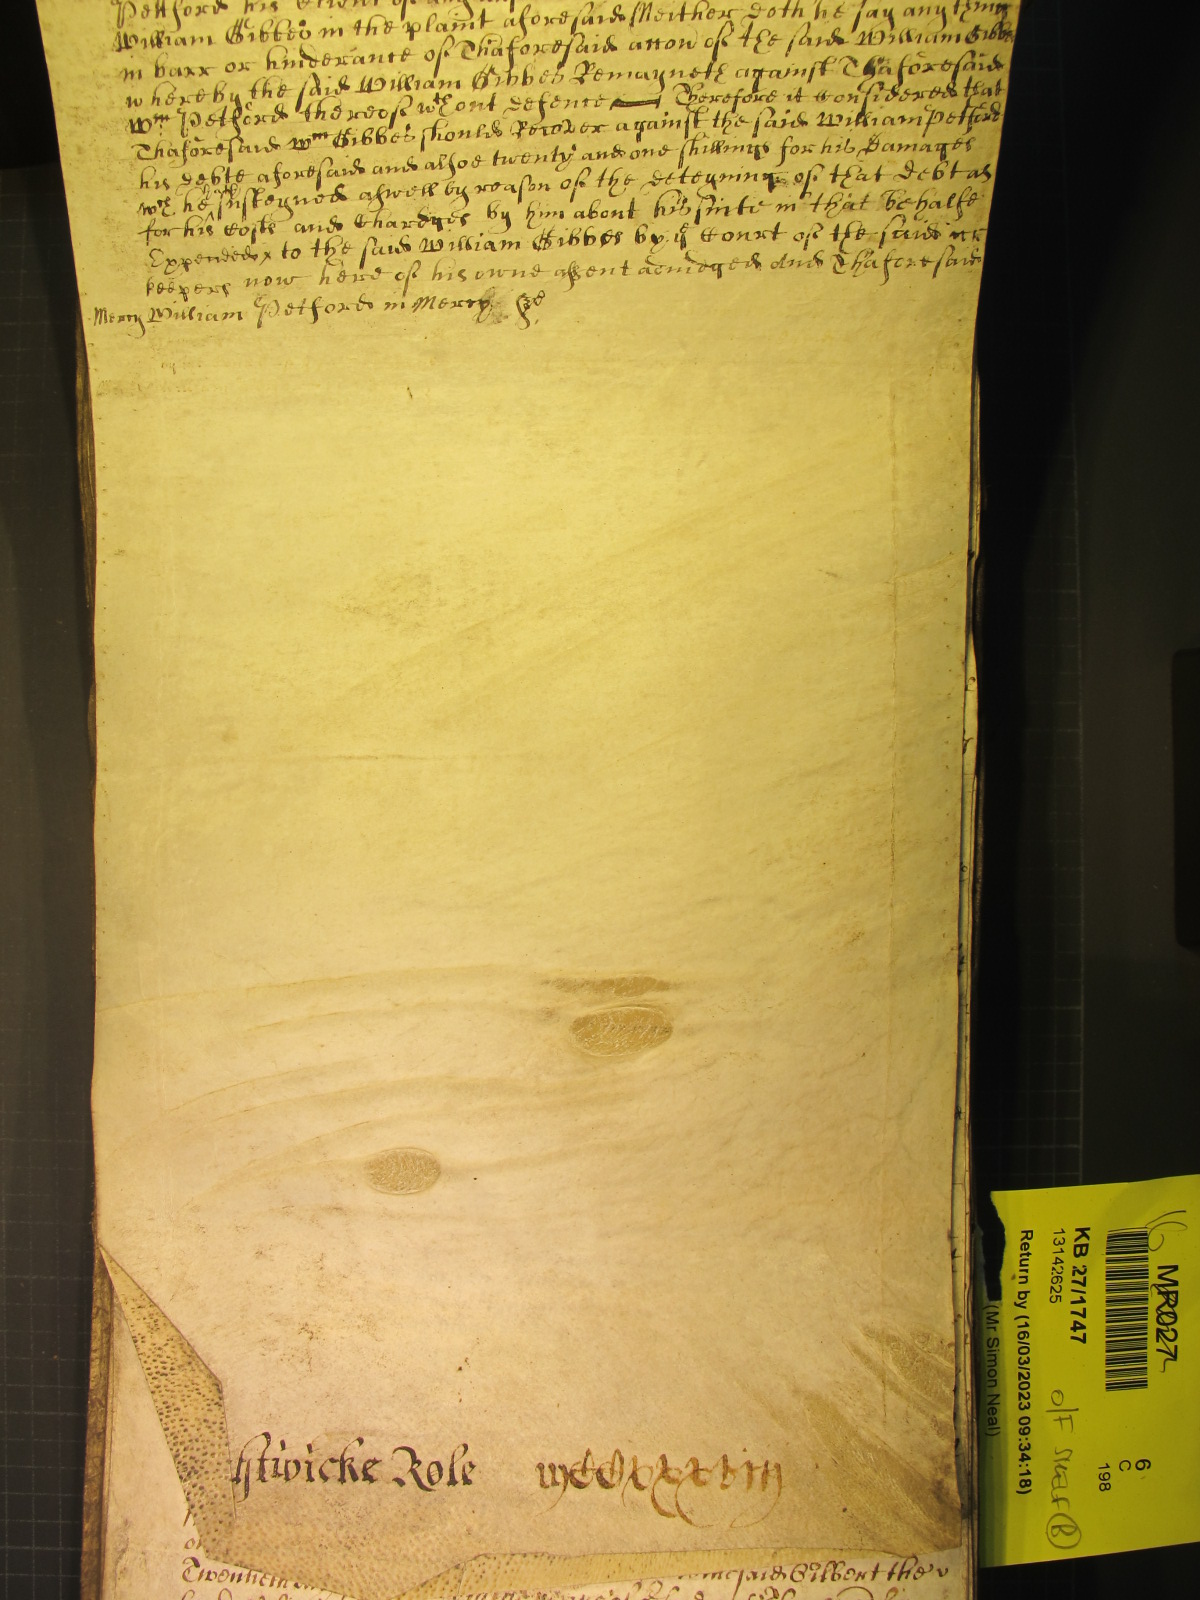 Petford his Client of any
William Gibbes in the plaint aforesaid Neither doth he say any thing
in barr or hinderance of Thaforesaid accon of the said William Gibbes
whereby the said William Gibbes Remayneth against Thaforesaid
Wm Petford thereof wthout defence Therefore it Considered that
Thaforesaid Wm Gibbes should Recover against the said William Petford
his debte aforesaid and alsoe twenty and one shillings for his Damages
wch he susteyned aswell by reason of the deteyning of that debt as
for his costs and Chardges by him about his suite in that behalfe
Expended to the said William Gibbes by ye Court of the said
keepers now here of his owne assent adiudged And Thaforesaid
Mercy William Petford in Mercy &c
stwicke Role mccxxxviij
Twentieth
said Gilbert the
MR027
KB 27/1747
13142625
Return by (16/03/2023 09:34:18)
(Mr Simon Neal)
6
C
198
16